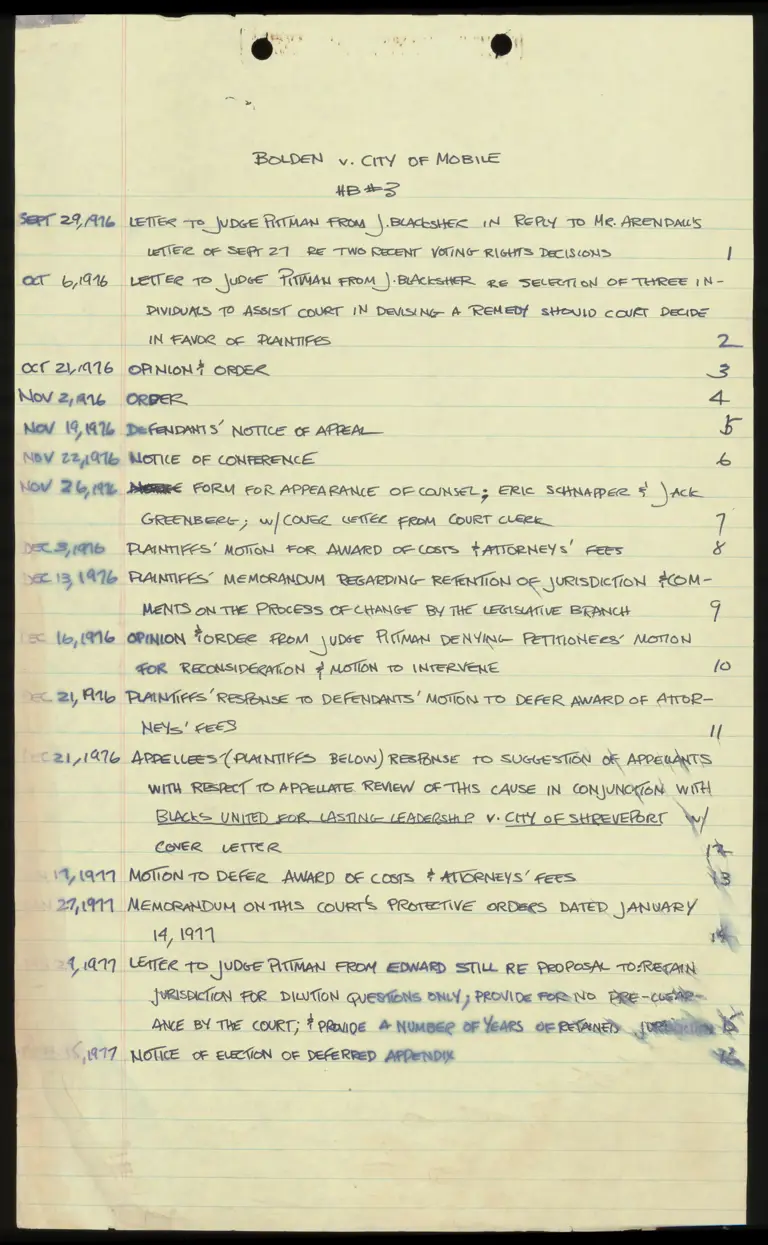 BOLDEN v. CITY OF MOBILE
HB #3
SEPT 29, 1976 LETTER TO JUDGE PITTMAN FROM J. BLACKSHER IN REPLY TO MR. ARENDALL'S
LETTER OF SEPT 27 RE TWO RECENT VOTING RIGHTS DECISIONS 1
OCT 6, 1976 LETTER TO JUDGE PITTMAN FROM J. BLACKSHER RE SELECTION OF THREE IN-
DIVIDUALS TO ASSIST COURT IN DEVISING A REMEDY SHOULD COURT DECIDE
IN FAVOR OF PLAINTIFFS 2
OCT 21, 1976 OPINION & ORDER 3
NOV 2, 1976 ORDER 4
NOV 19, 1976 DEFENDANTS' NOTICE OF APPEAL 5
NOV 22, 1976 NOTICE OF CONFERENCE 6
NOV 26, 1976 FORM FOR APPEARANCE OF COUNSEL; ERIC SCHNAPPER & JACK
GREENBERG; W/COVER LETTER FROM COURT CLERK 7
DEC 3, 1976 PLAINTIFFS' MOTION FOR AWARD OF COSTS & ATTORNEYS' FEES 8
DEC 13, 1976 PLAINTIFFS' MEMORANDUM REGARDING RETENTION OF JURISDICTION & COM-
MENTS ON THE PROCESS OF CHANGE BY THE LEGISLATIVE BRANCH 9
DEC 16, 1976 OPINION & ORDER FROM JUDGE PITTMAN DENYING PETITIONERS' MOTION
FOR RECONSIDERATION & MOTION TO INTERVENE 10
DEC 21, 1976 PLAINTIFFS' RESPONSE TO DEFENDANTS' MOTION TO DEFER AWARD OF ATTOR-
NEYS' FEES 11
DEC 21, 1976 APPELLEES' (PLAINTIFFS BELOW) RESPONSE TO SUGGESTION OF APPELLANTS
WITH RESPECT TO APPELLATE REVIEW OF THIS CAUSE IN CONJUNCTION WITH
BLACKS UNITED FOR LASTING LEADERSHIP v. CITY OF SHREVEPORT W/
COVER LETTER 12
17, 1977 MOTION TO DEFER AWARD OF COSTS & ATTORNEYS' FEES 13
27, 1977 MEMORANDUM ON THIS COURT'S PROTECTIVE ORDERS DATED JANUARY
14, 1977 14
1977 LETTER TO JUDGE PITTMAN FROM EDWARD STILL RE PROPOSAL TO: RETAIN
JURISDICTION FOR DILUTION QUESTIONS ONLY; PROVIDE FOR NO PRE-CLEAR-
ANCE BY THE COURT; & PROVIDE A NUMBER OF YEARS OF RETAINED JURISDICTION 15
15, 1977 NOTICE OF ELECTION OF DEFERRED APPENDIX 16